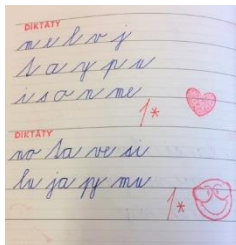 DIKTÁTY
m e l v j
t a y p u
i s o n me
1*
DIKTÁTY
no ta ve si
lu ja py mu
1*